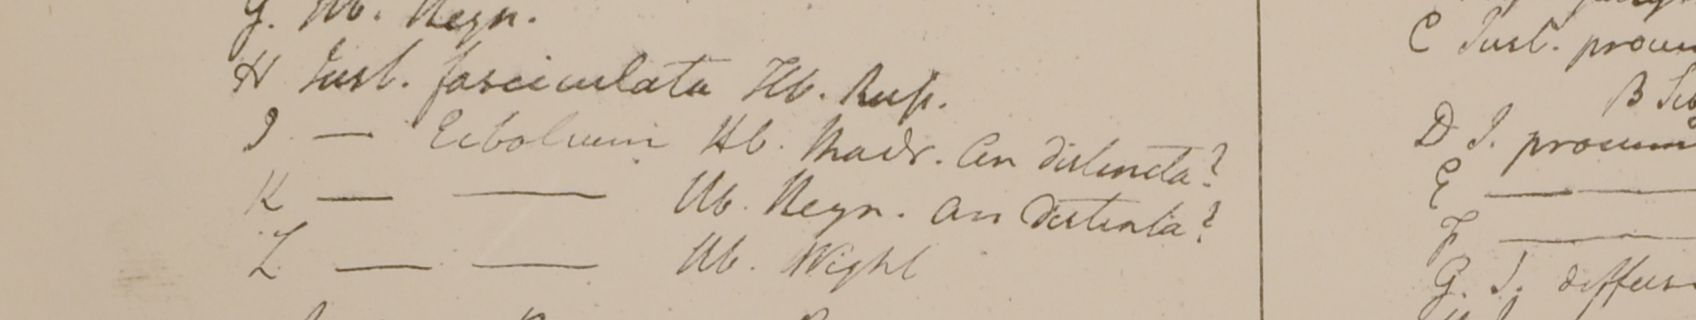 G. Hb. Heyn.
H Just. fasciculata Hb. Russ.
I — Ecbolium Hb. Madr. an distincta?
K — — Hb. Heyn. an distincta?
L — — Hb. Wight
C Just. procum
B
D J. procum
E —
F —
G. J. diffus